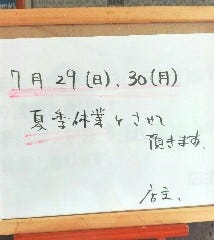 7月 29(日)、30(月)
夏季休業とさせて
頂きます。
店主、